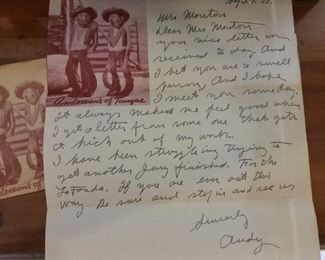 Sept 7.
Mrs Moreton
Dear Mrs Morton
your nice letter was
received to day. And
I bet you are a swell
person, And I hope
I meet you some day.
It always makes me feel good when
I get a letter from some one that gets
a kick out of my work.
I have been struggling trying to
get another Jury finished. For the
La Fonda. If you are ever out this
way. Be sure and stop in and see us
Sincerely
Andy
Andersons of Tesuque
dersons of